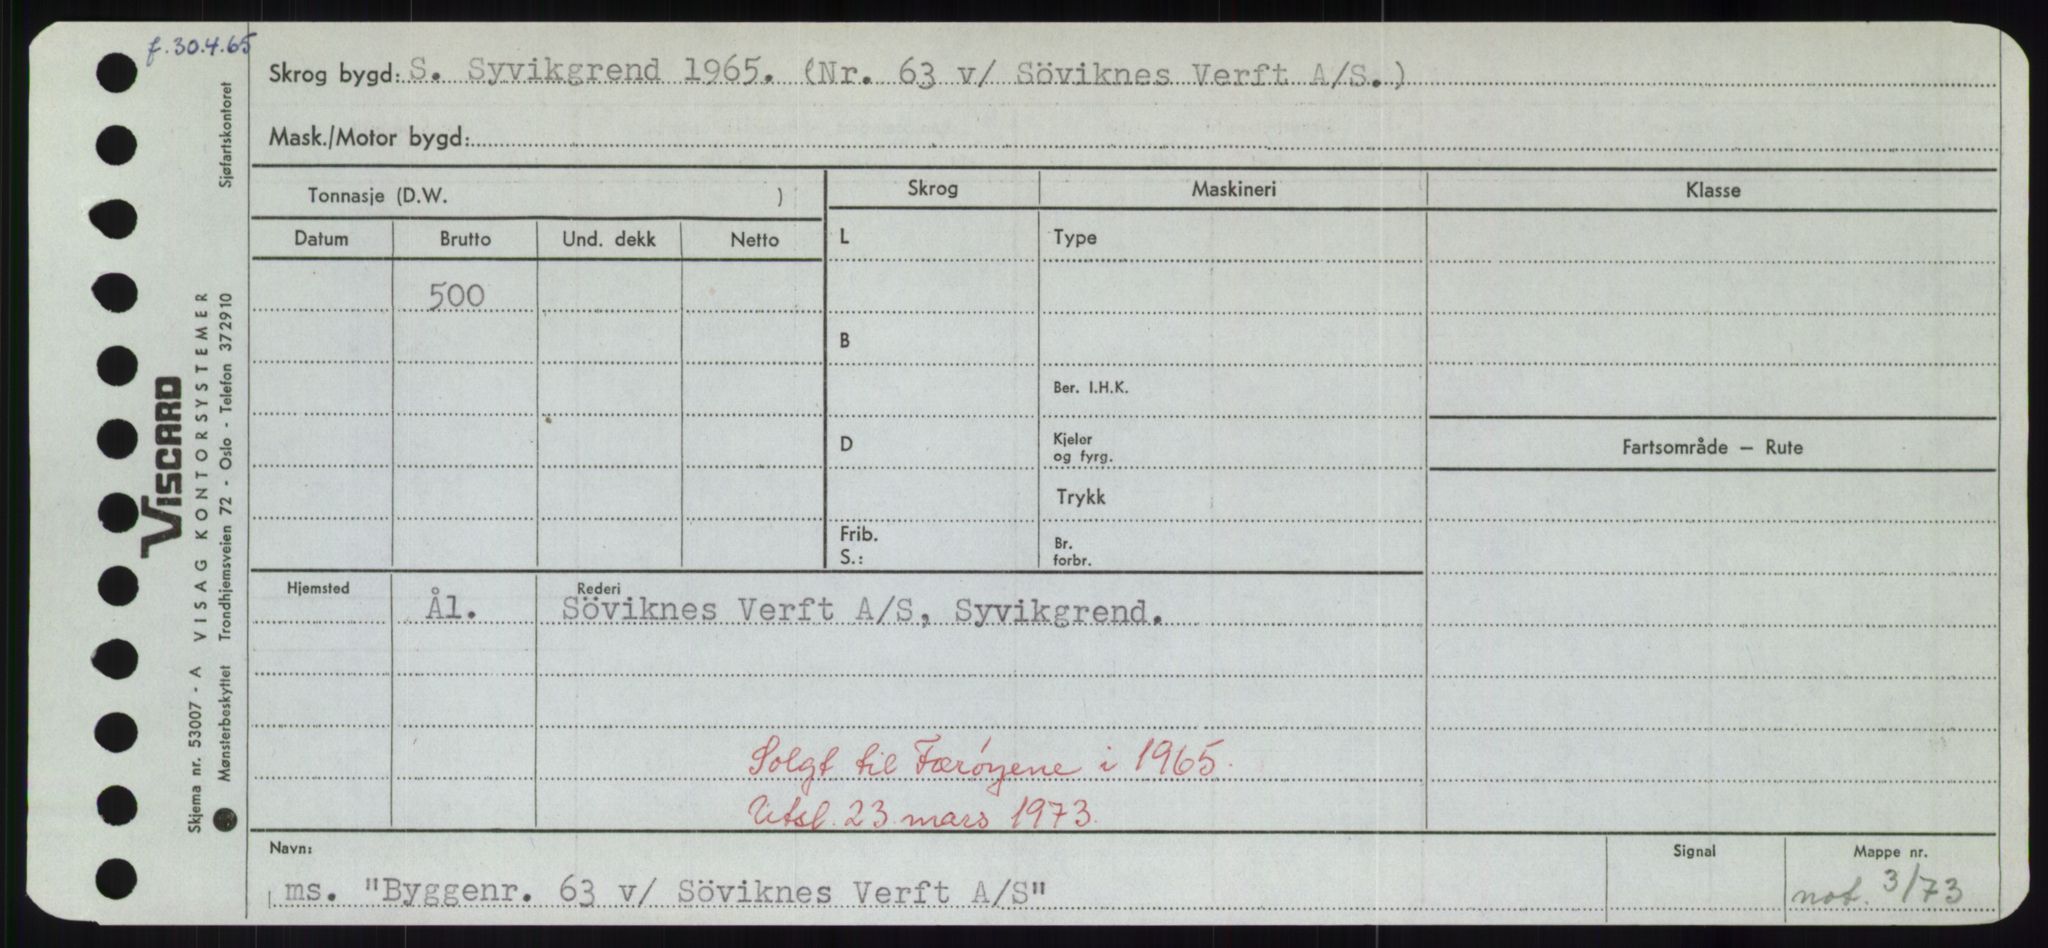 f. 30.4.65
Skrog bygd: S. Syvikgrend 1965. (Nr. 63 v/ Söviknes Verft A/S.)
Mask./Motor bygd:
Tonnasje (D.W. )
Skrog
Maskineri
Klasse
Datum
Brutto
Und. dekk
Netto
L
Type
500
B
Ber. I.H.K.
D
Kjeler
og fyrg.
Fartsområde — Rute
Trykk
Frib.
S.:
Br.
forbr.
Hjemsted
Ål.
Rederi
Söviknes Verft A/S, Syvikgrend.
Solgt til Færöyene i 1965.
Utsl. 23. mars 1973.
Navn:
ms. "Byggenr. 63 v/ Söviknes Verft A/S"
Signal
Mappe nr.
not. 3/73
Skjema nr. 53007 - A VISAG KONTORSYSTEMER
Mønsterbeskyttet Trondhjemsveien 72 - Oslo - Telefon 372910
Sjøfartskontoret
VISCARD